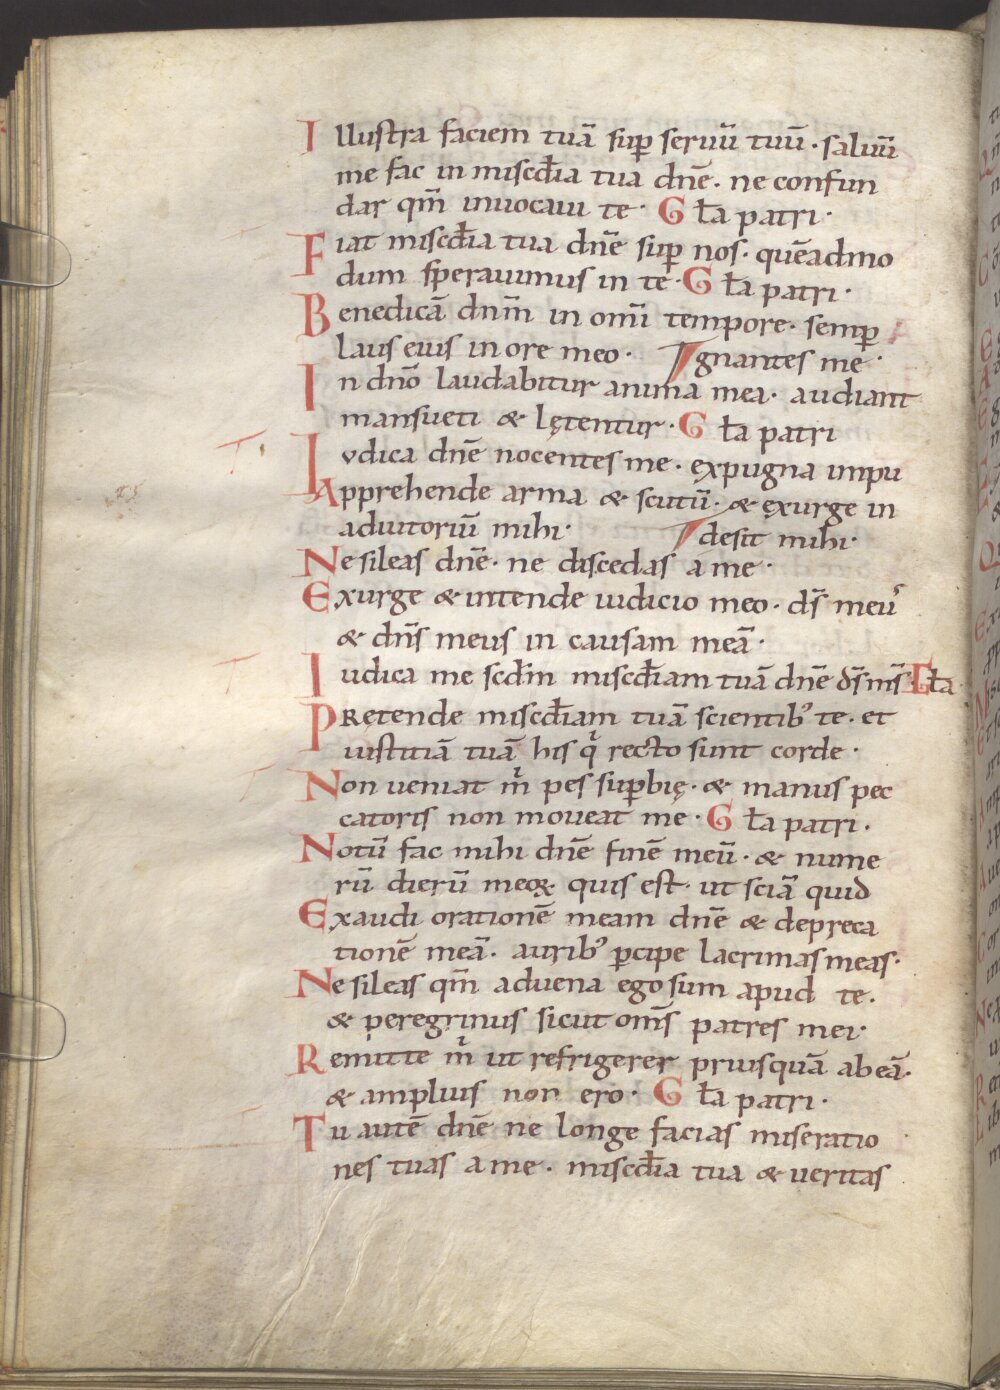 Illustra faciem tuā sup̄ seruū tuū · saluū
me fac in misc̄dia tua dn̄e · ne confun
dar qm̄ inuocaui te · G ła patri ·
Fiat misc̄dia tua dn̄e sup̄ nos · quēadmo
dum sperauimus in te · G ła patri ·
Benedicā dnm̄ in omī tempore · semp̄
laus eius in ore meo · / gnantes me ·
In dn̄o laudabitur anima mea · audiant
mansueti & lętentur · G ła patri
Iudica dn̄e nocentes me · expugna inpu
Apprehende arma & scutū · & exurge in
adiutoriū mihi · / desit mihi ·
Ne sileas dn̄e · ne discedas a me ·
Exurge & intende iudicio meo · ds̄ meuˢ
& dn̄s meus in causam meā ·
Iudica me scd̄m misc̄diam tuā dn̄e ds̄ ms̄ · G ła
Pretende misc̄diam tuā scientibꝰ te · et
iustitiā tuā his q̇ recto sunt corde ·
Non ueniat m̊ pes sup̄bię · & manus pec
catoris non moueat me · G ła patri ·
Notū fac mihi dn̄e finē meū · & nume
rū dierū meoꝝ quis est · ut sciā quid
Exaudi orationē meam dn̄e & depreca
tionē meā · auribꝰ p̄cipe lacrimas meas ·
Ne sileas qm̄ aduena ego sum apud te ·
& peregrinus sicut oms̄ patres mei ·
Remitte m̊ ut refrigerer priusquā abeā ·
& amplius non ero · G ła patri ·
Tu autē dn̄e ne longe facias miseratio
nes tuas a me · misc̄dia tua & ueritas